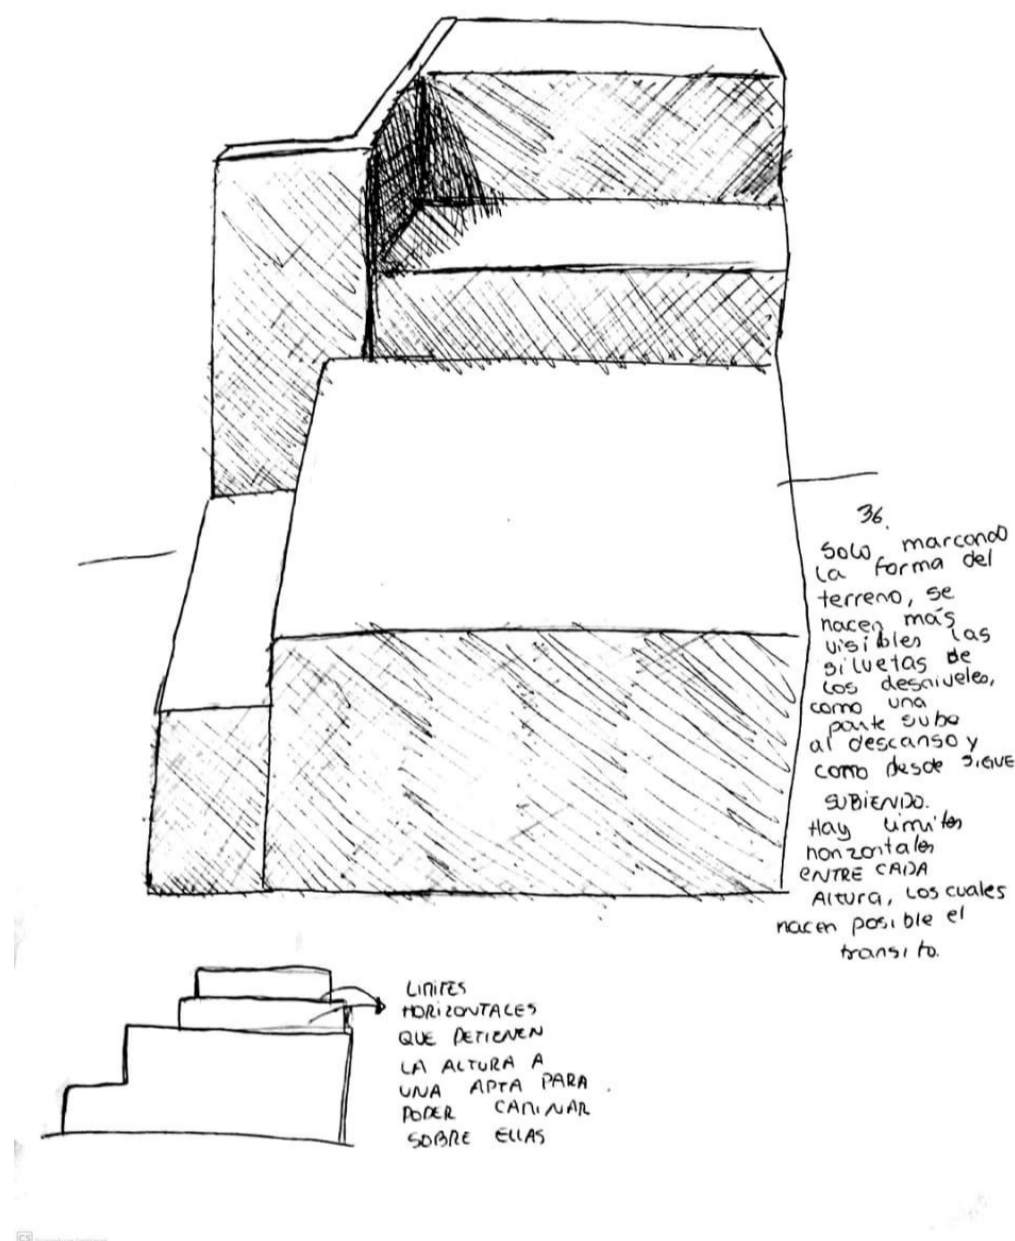 36.
Solo marcando
la forma del
terreno, se
hacen más
visibles las
siluetas de
los desniveles,
como una
parte sube
al descanso y
como desde SIGUE
SUBIENDO.
Hay limites
horizontales
ENTRE CADA
Altura, los cuales
hacen posible el
transito.
LIMITES
HORIZONTALES
QUE DETIENEN
LA ALTURA A
UNA APTA PARA
PODER CAMINAR
SOBRE ELLAS
CS